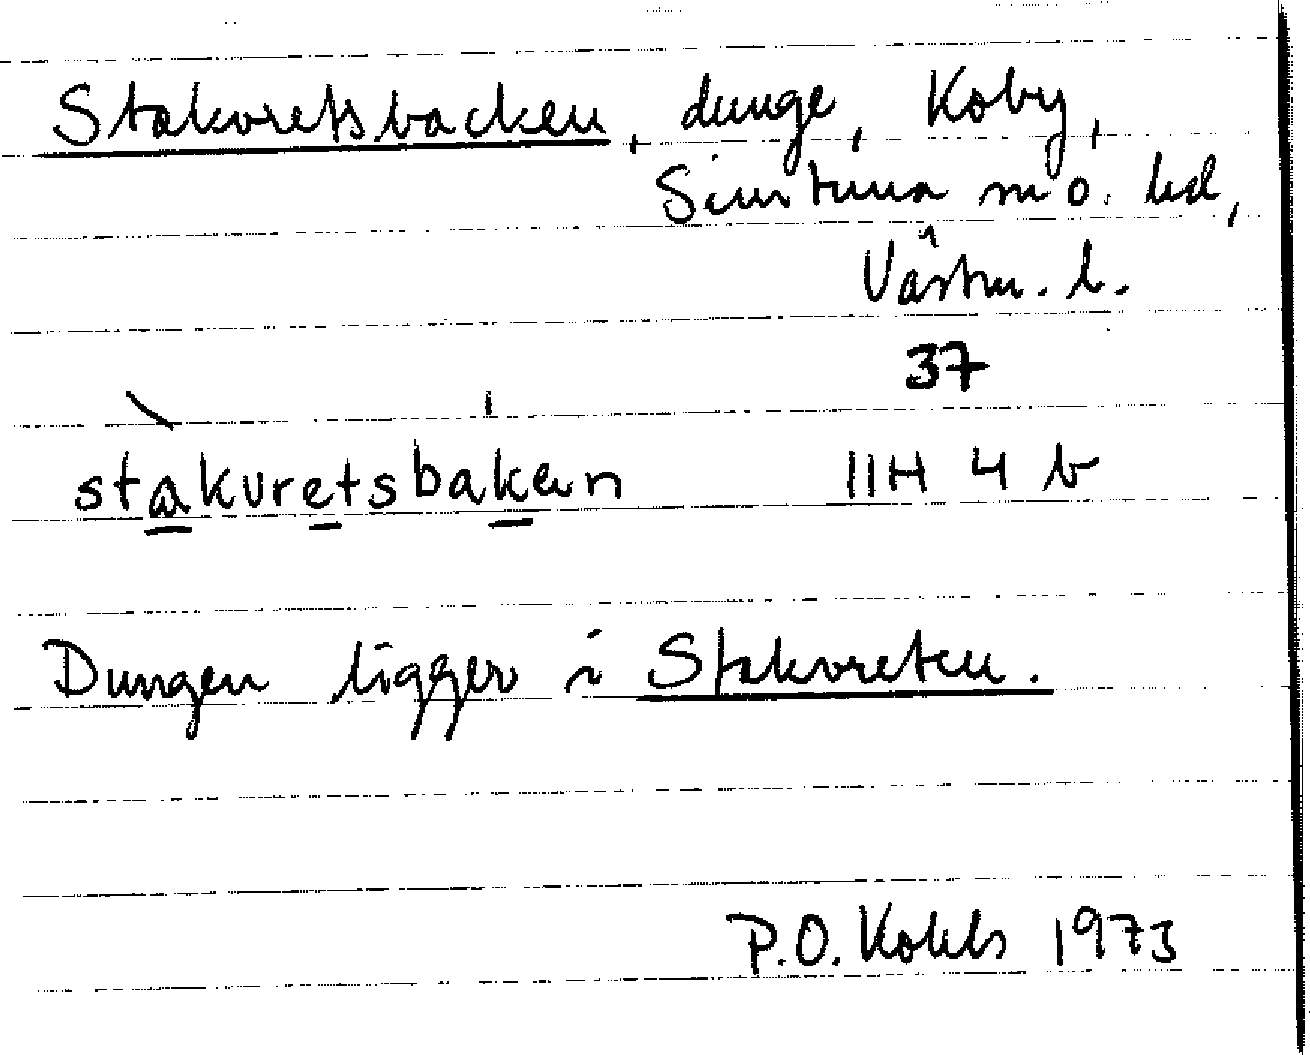 Stakvretsbacken, dunge, Koby,
Simtuna sn o. hd,
Västm. l.
37
stakvretsbakæn 11H 4 b
Dungen ligger i Stakvreten.
P.O. 1973